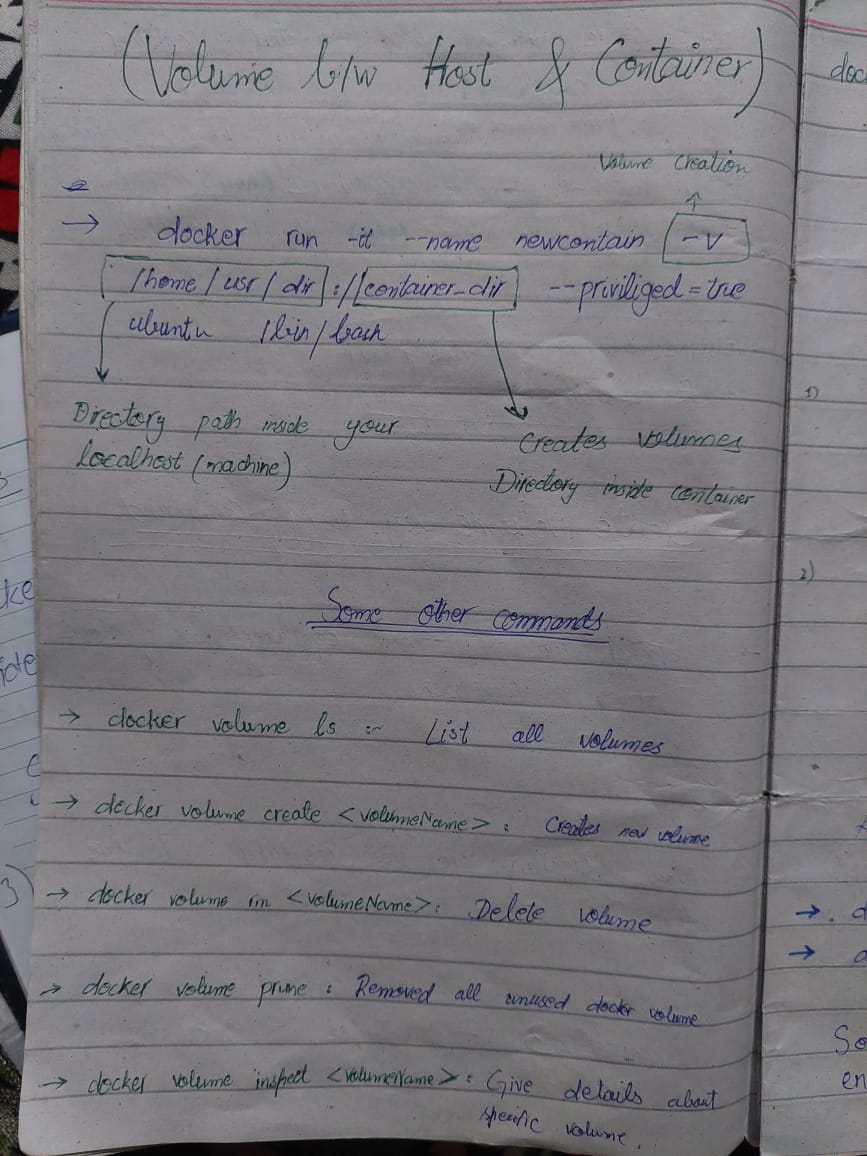 (Volume b/w Host & Container)
Volume Creation
→ docker run -it --name newcontain -v
/home/usr/dir://container_dir --priviliged=true
ubuntu /bin/bash
Directory path inside your
localhost (machine)
Creates volumes
Directory inside container
Some other commands
→ docker volume ls :- List all volumes
→ docker volume create <volumeName> : Creates new volume
→ docker volume rm <volumeName>: Delete volume
→ docker volume prune : Removed all unused docker volume
→ docker volume inspect <volumeName> : Give details about
specific volume.
doc
1)
2)
3)
ke
→ . d
→ d
So
en